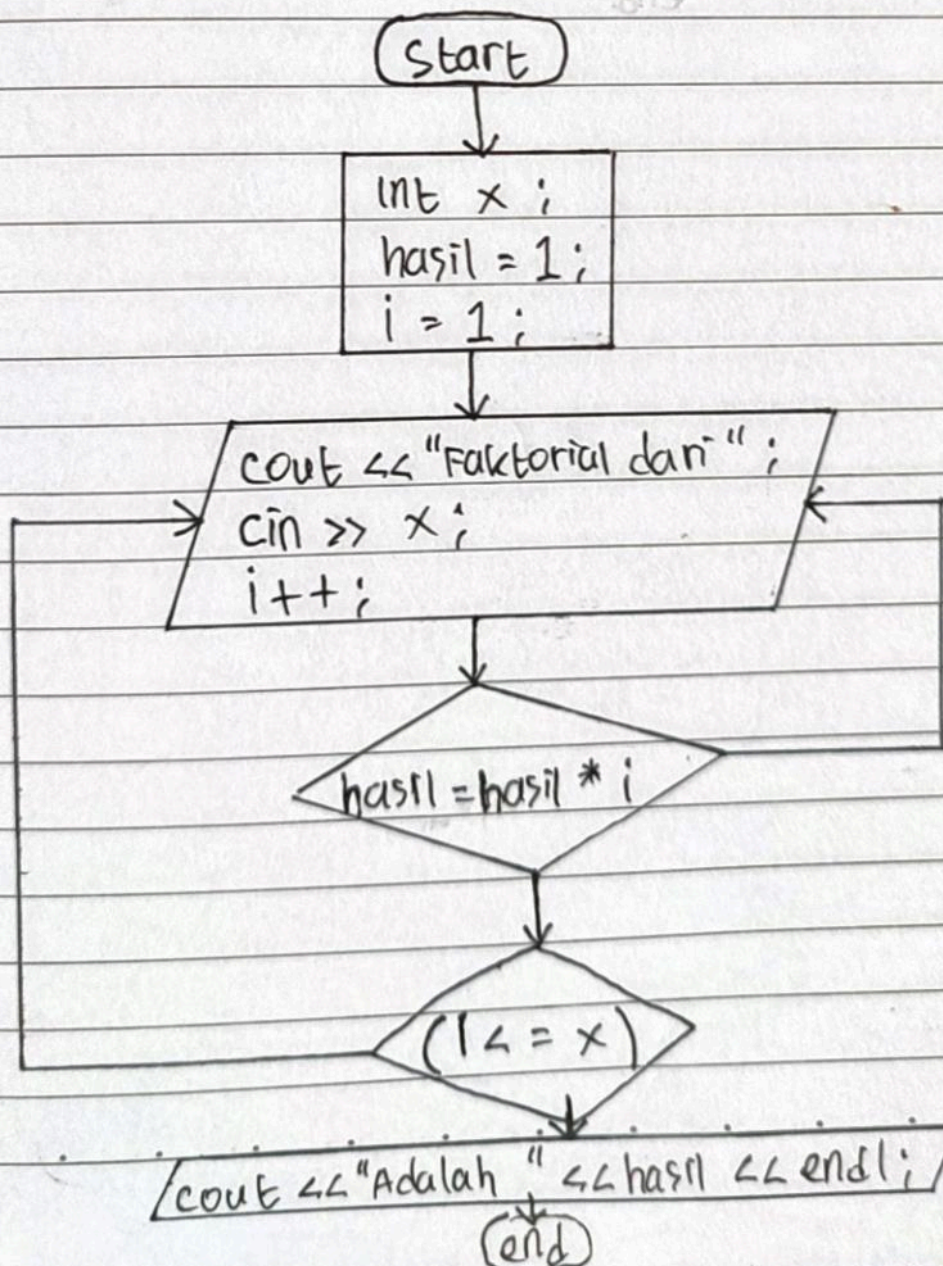 Start
int x ;
hasil = 1 ;
i = 1 ;
cout << "Faktorial dari" ;
cin >> x ;
i++ ;
hasil = hasil * i
(1 <= x)
cout << "Adalah " << hasil << endl ;
end